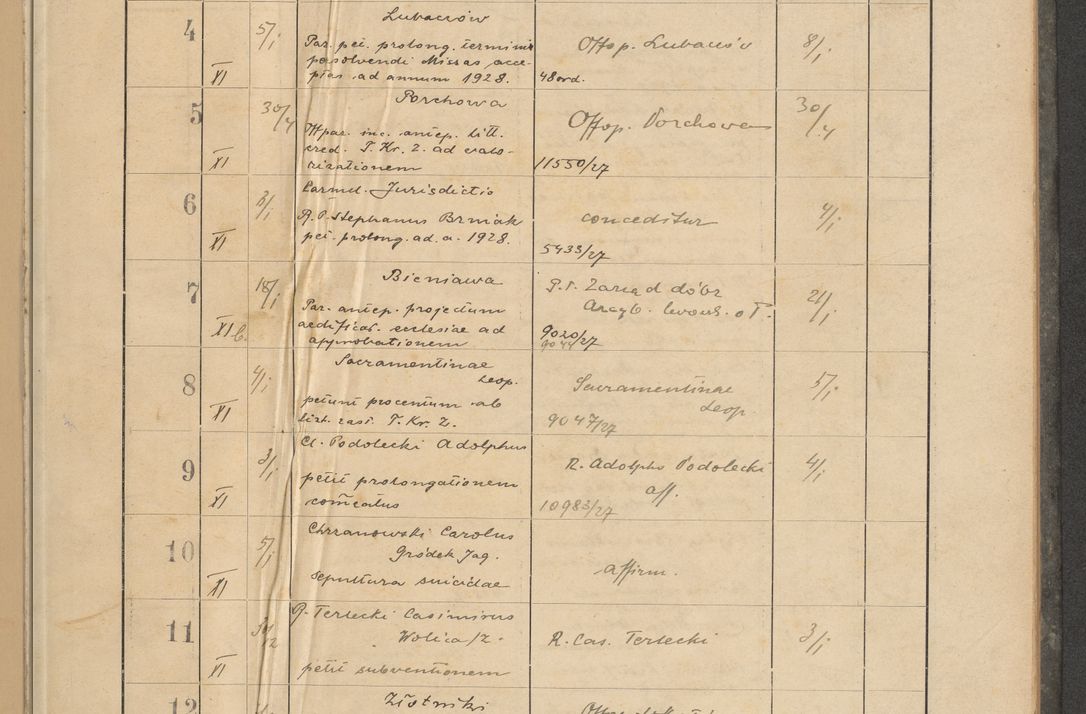 4
5/I
Lubaczów
Par. pet. prolong. termini
persolvendi Missas acce-
ptas ad annum 1928.
XI
Offop. Lubaczów
48 ord.
8/I
5
30/4
Porchowa
Offpar. inc. antep. litt.
cred. T. Kr. Z. ad valo-
rizationem
XI
Offop. Porchowa
11550/27
30/4
6
3/I
Carmel. Jurisdictio
R. P. Stephanus Brniak
pet. prolong. ad. a. 1928.
XI
conceditur
5433/27
4/I
7
18/I
Bieniawa
Par. antep. projectum
aedificat. ecclesiae ad
approbationem
XI b.
P. T. Zarząd dóbr
Arcyb. lwows. o T.
9020/27
9044
21/I
8
4/I
Sacramentinae
Leop.
petunt procentum ab
list. zast. T. Kr. Z.
XI
Sacramentinae
Leop
9047/27
5/I
9
3/I
Cl. Podolecki Adolphus
petit prolongationem
com̄eatus
XI
R. Adolpho Podolecki
aff.
10983/27
4/I
10
5/I
Chrzanowski Carolus
Gródek Jag.
sepultura suicidae
XI
affirm.
11
12
R. Terlecki Casimirus
Wolica /Z.
petit subventionem
XI
R. Cas. Terlecki
3/I
12
Złotniki